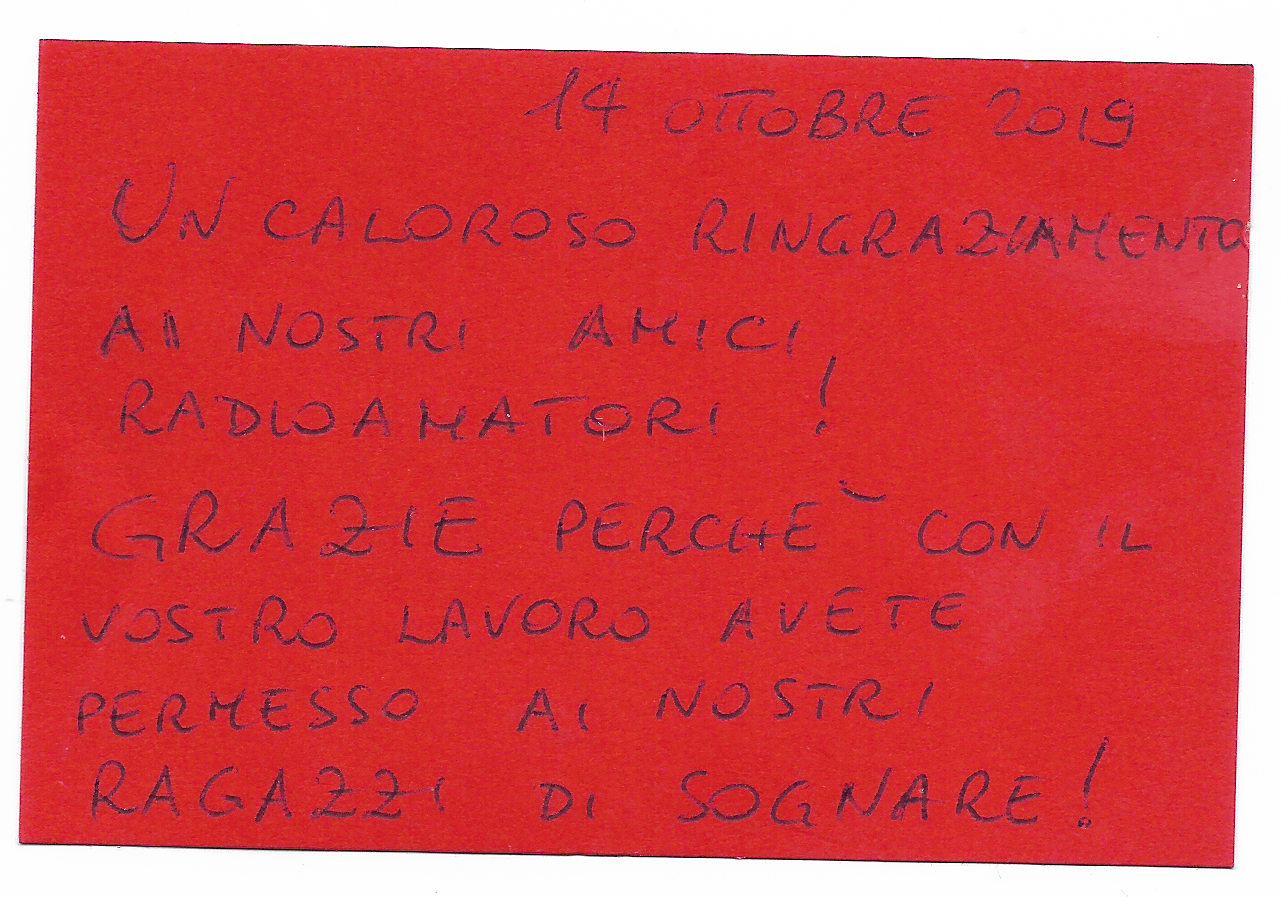 14 OTTOBRE 2019
UN CALOROSO RINGRAZIAMENTO
AII NOSTRI AMICI
RADIOAMATORI !
GRAZIE PERCHÈ CON IL
VOSTRO LAVORO AVETE
PERMESSO AI NOSTRI
RAGAZZI DI SOGNARE!